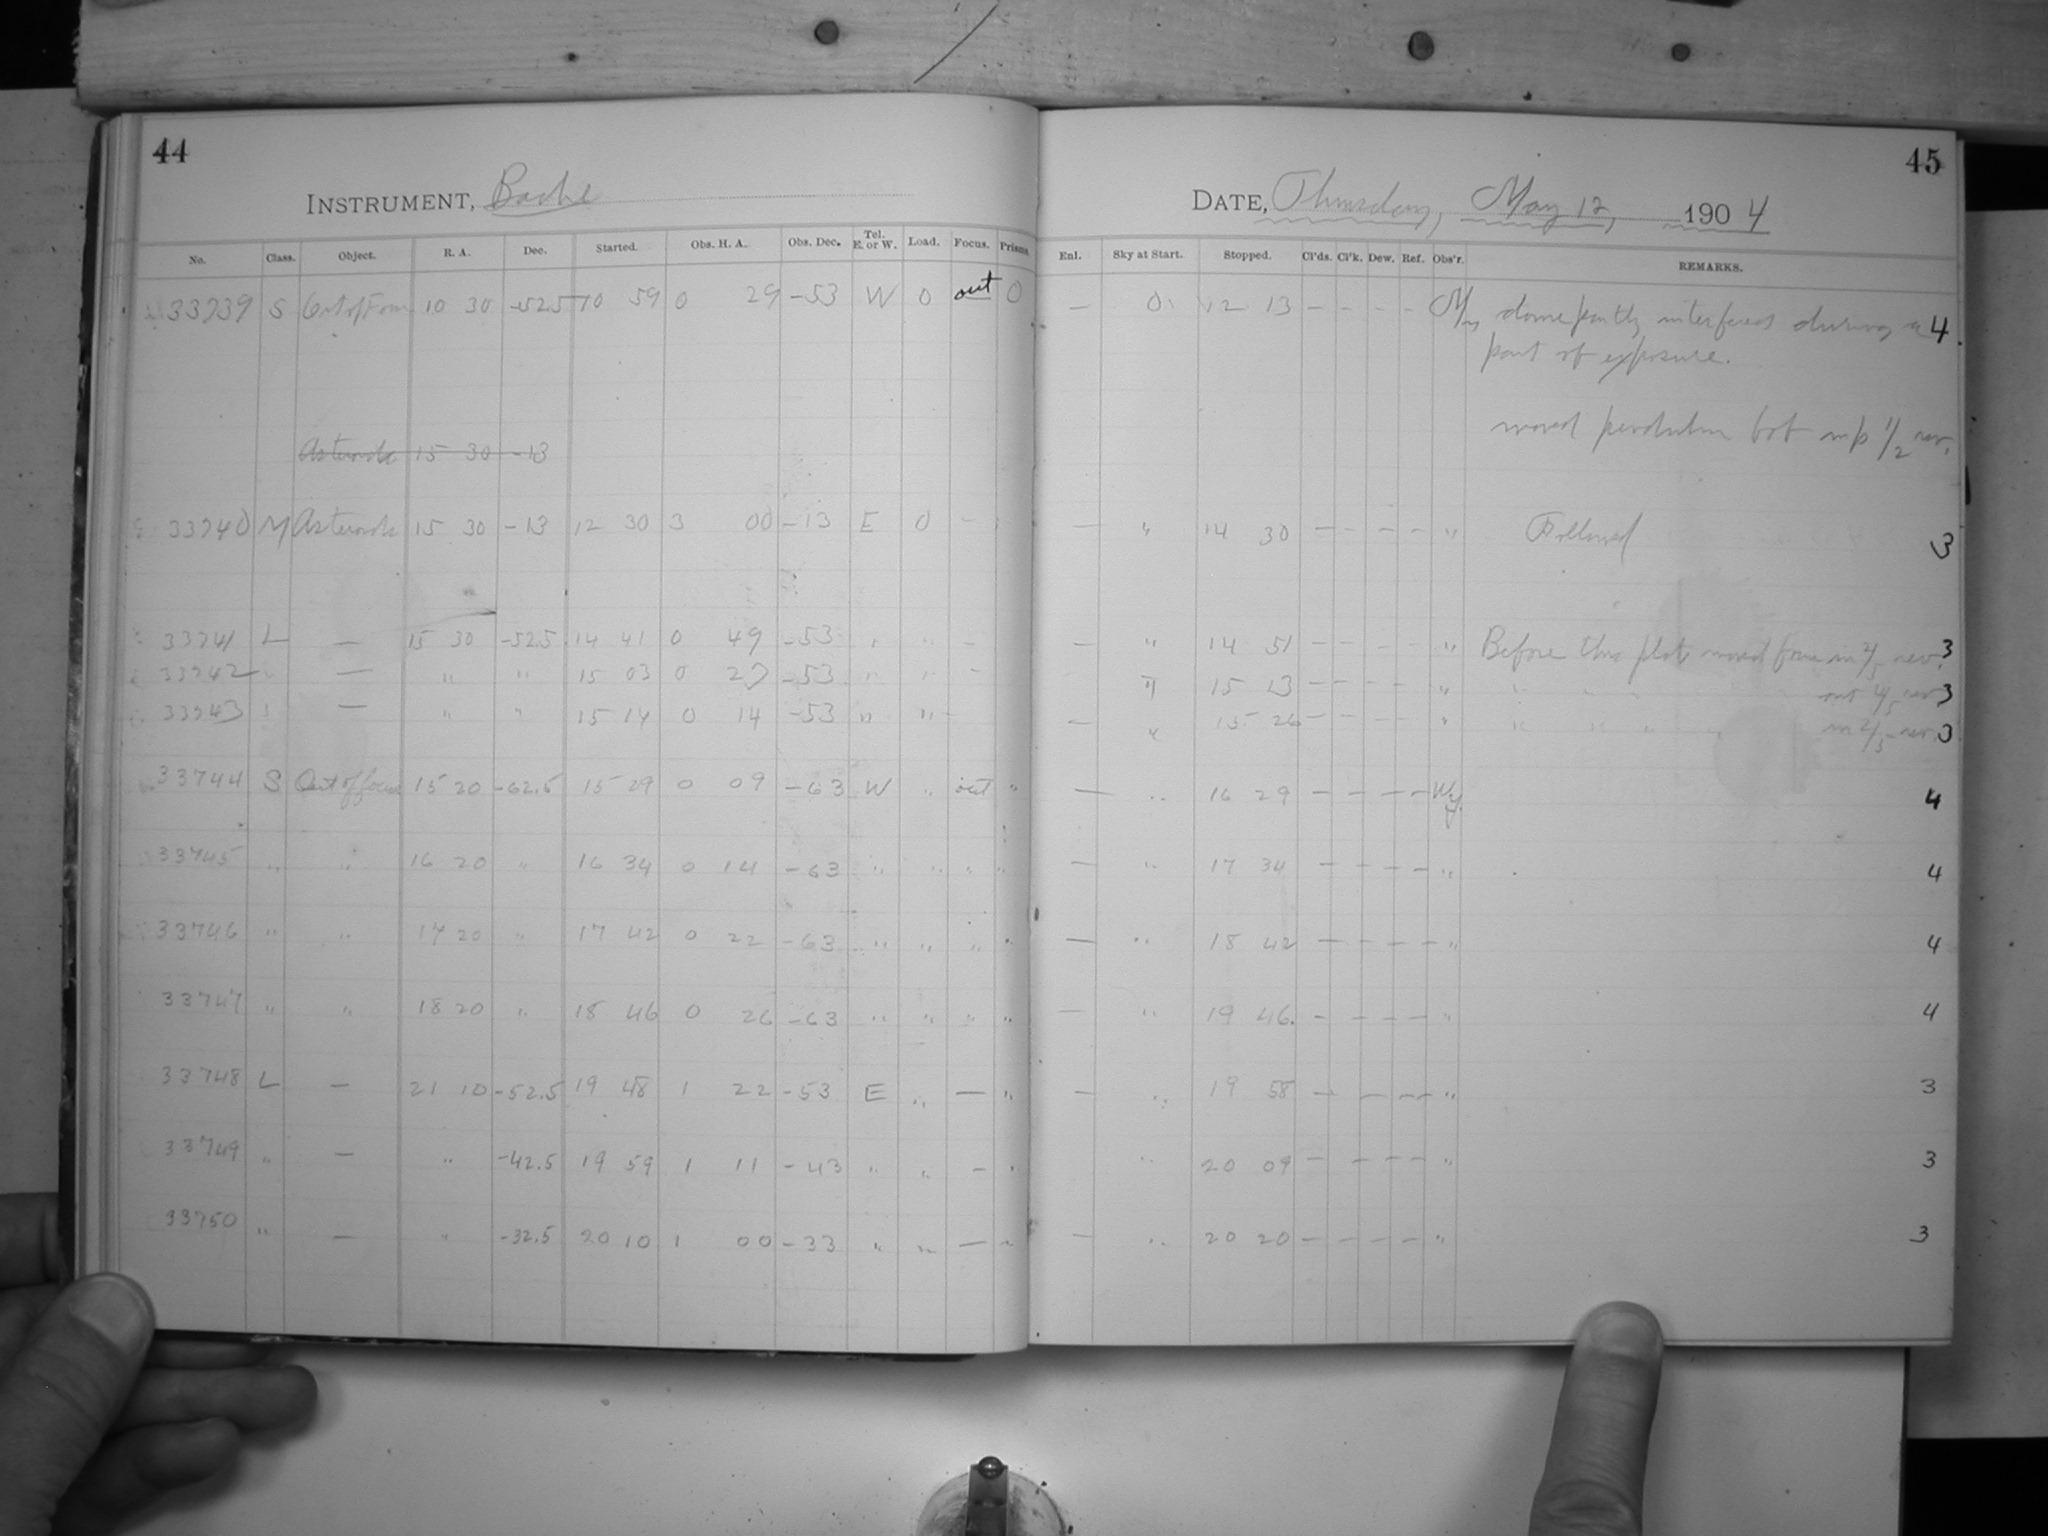 44
INSTRUMENT, Bache
No. Class. Object. R. A. Dec. Started. Obs. H. A. Obs. Dec. Tel. E. or W. Load. Focus. Prisms.
33739 S Out of Focus 10 30 -52.5 10 59 0 29 -53 W 0 out 0
Asteroids 15 30 -13
33740 M Asteroids 15 30 -13 12 30 3 00 -13 E 0 -
33741 L — 15 30 -52.5 14 41 0 49 -53 " " -
33742 " — " " 15 03 0 27 -53 " " -
33743 " — " " 15 14 0 14 -53 " " -
33744 S Out of focus 15 20 -62.5 15 29 0 09 -63 W " out "
33745 " " 16 20 " 16 34 0 14 -63 " " " "
33746 " " 17 20 " 17 42 0 22 -63 " " " "
33747 " " 18 20 " 18 46 0 26 -63 " " " "
33748 L — 21 10 -52.5 19 48 1 22 -53 E " — "
33749 " — " -42.5 19 59 1 11 -43 " " - "
33750 " — " -32.5 20 10 1 00 -33 " " — "
45
DATE, Thursday, May 12, 1904
Enl. Sky at Start. Stopped. Cl'ds. Cl'k. Dew. Ref. Obs'r. REMARKS.
— 0 12 13 - - - - dome partly interfered during a 4
part of exposure.
moved pendulum bob up 1/2 rev.
— " 14 30 - - - - " Followed 3
— " 14 51 - - - - " Before this plate moved focus in 2/5 rev. 3
" 15 13 - - - - " " " " out 4/5 rev 3
— " 15 26 - - - - " " " " " in 2/5 rev. 3
— " 16 29 - - - - Wy. 4
— " 17 34 - - - - " 4
— " 18 42 - - - - " 4
— " 19 46. - - - - " 4
— " 19 58 - - - - " 3
" 20 09 - - - - " 3
— " 20 20 - - - - " 3